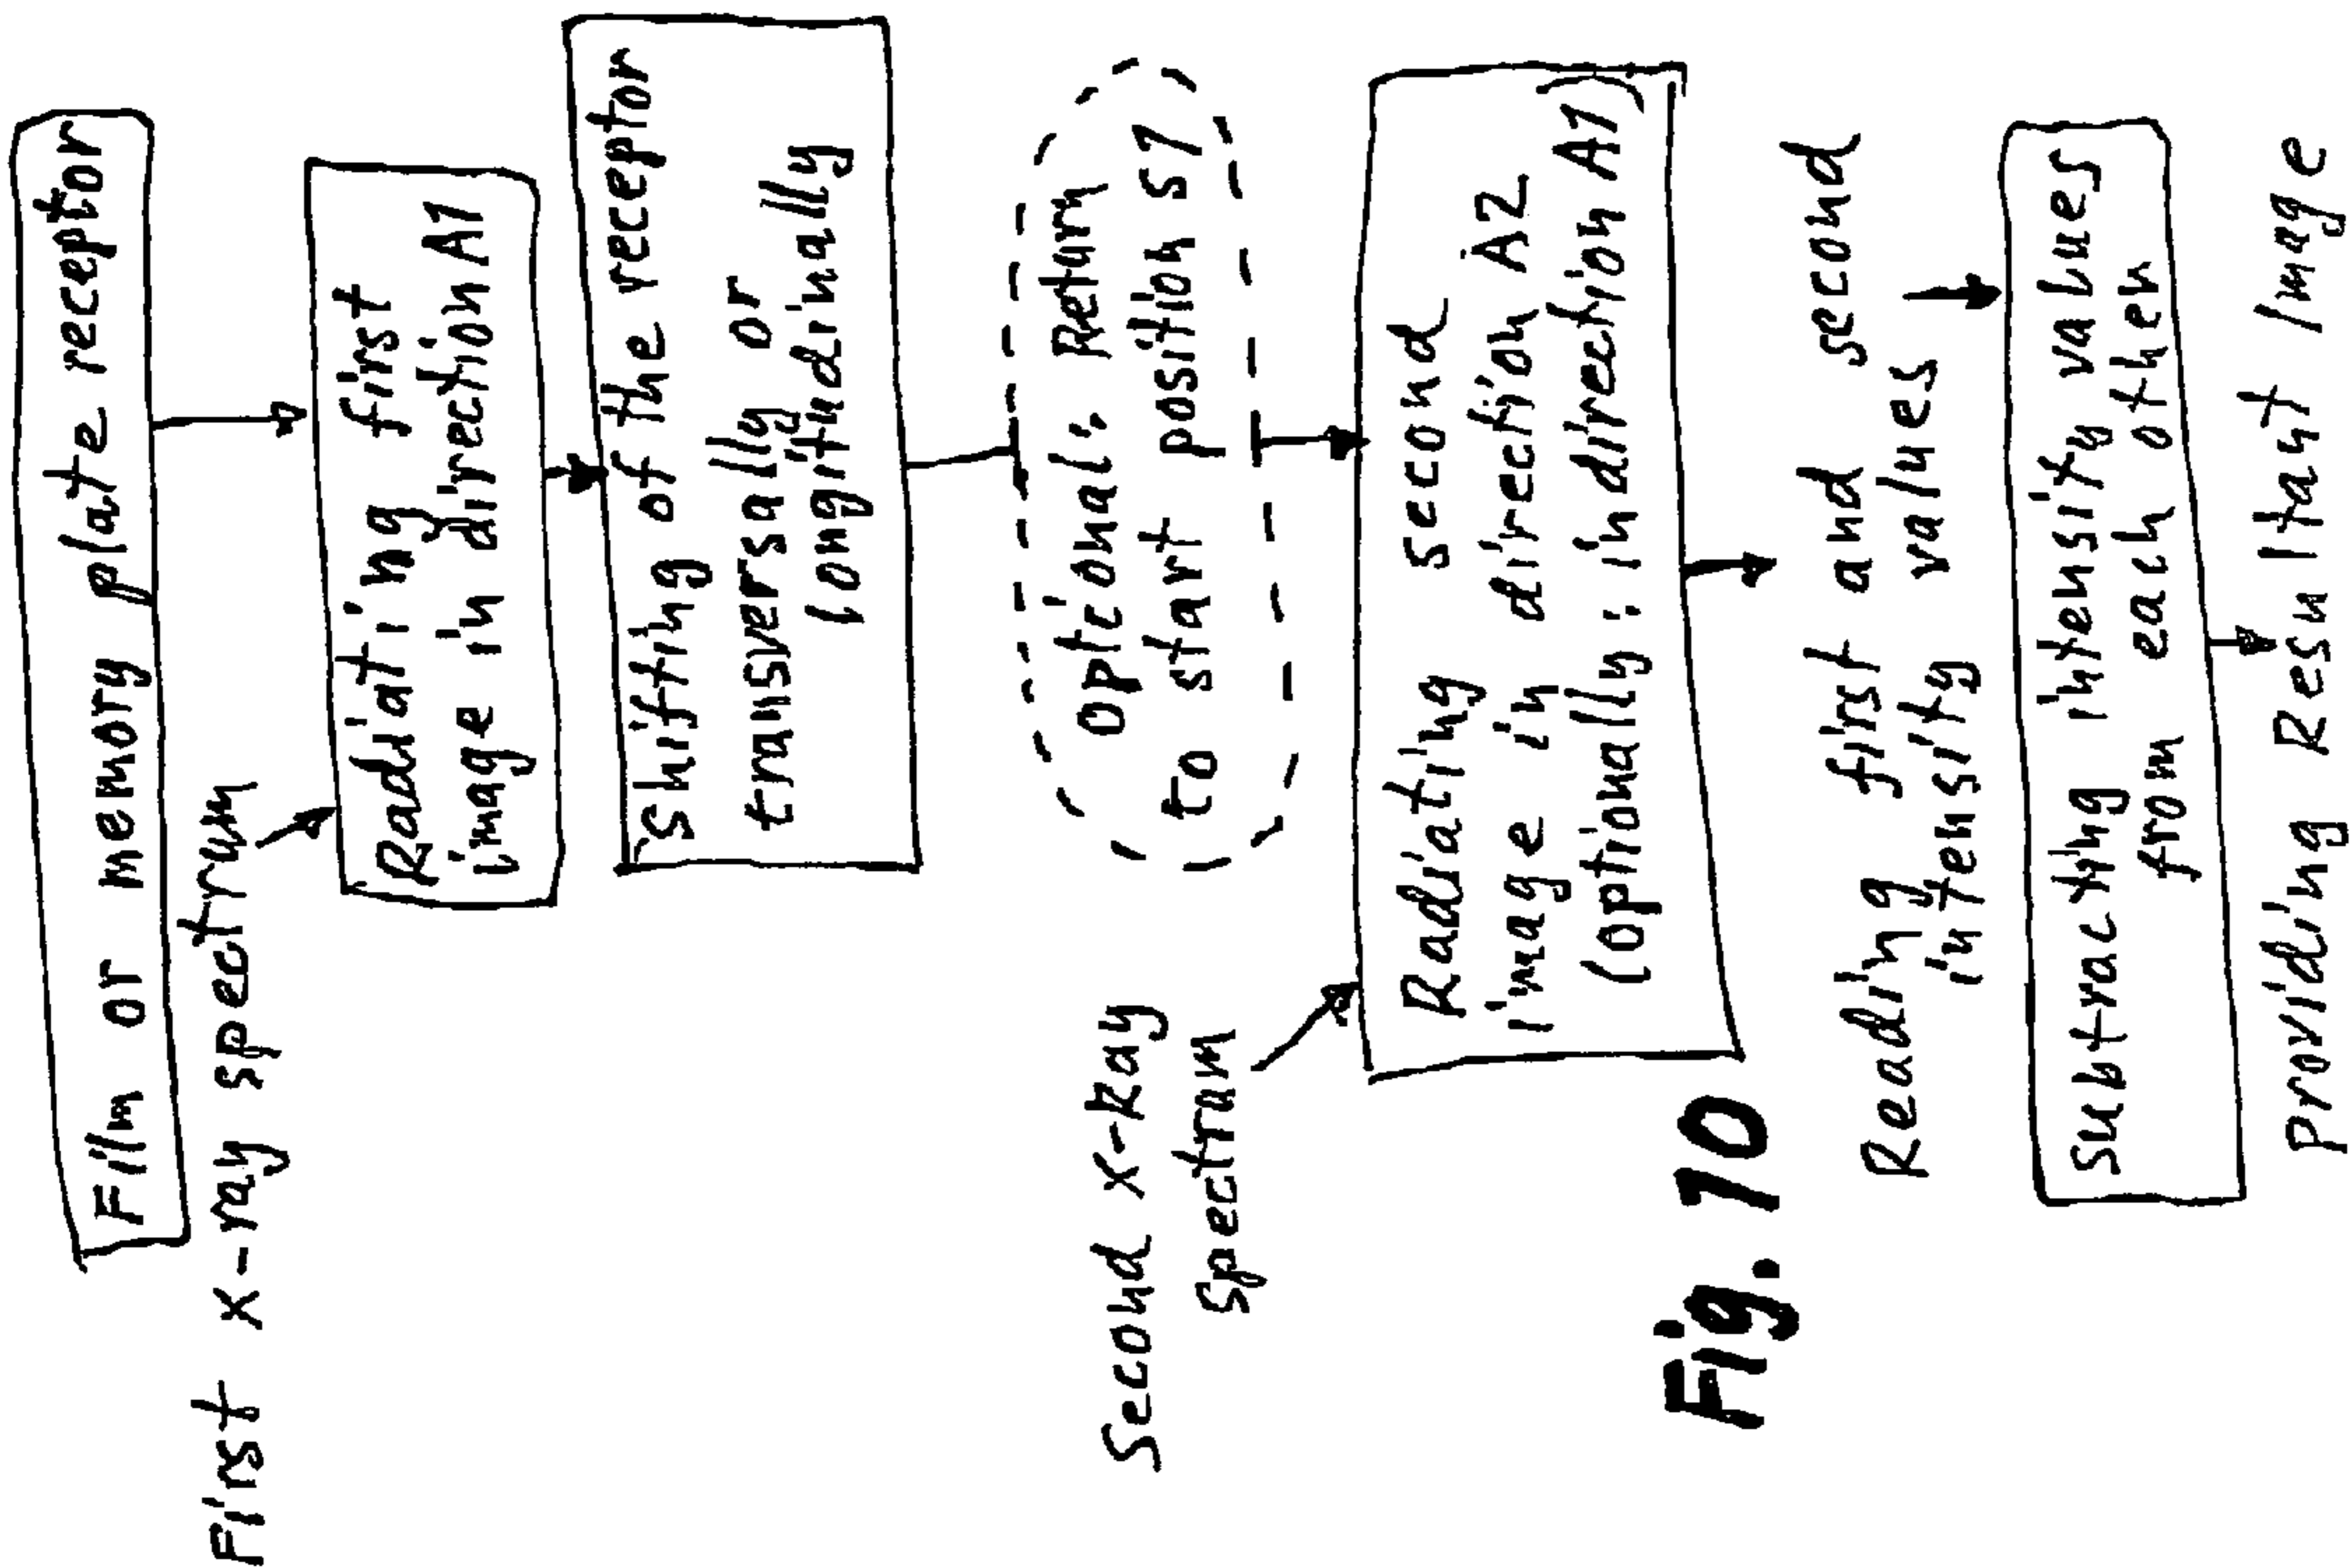 Film or memory plate receptor
First x-ray spectrum
Radiating first
image in direction A1
Shifting of the receptor
transversally or
longitudinally
Optional: Return
to start position S1
Second x-Ray
Spectrum
Radiating second
image in direction A2
(optionally: in direction A1)
Reading first and second
intensity values
Subtracting intensity values
from each other
Providing Resultant Image
Fig. 10